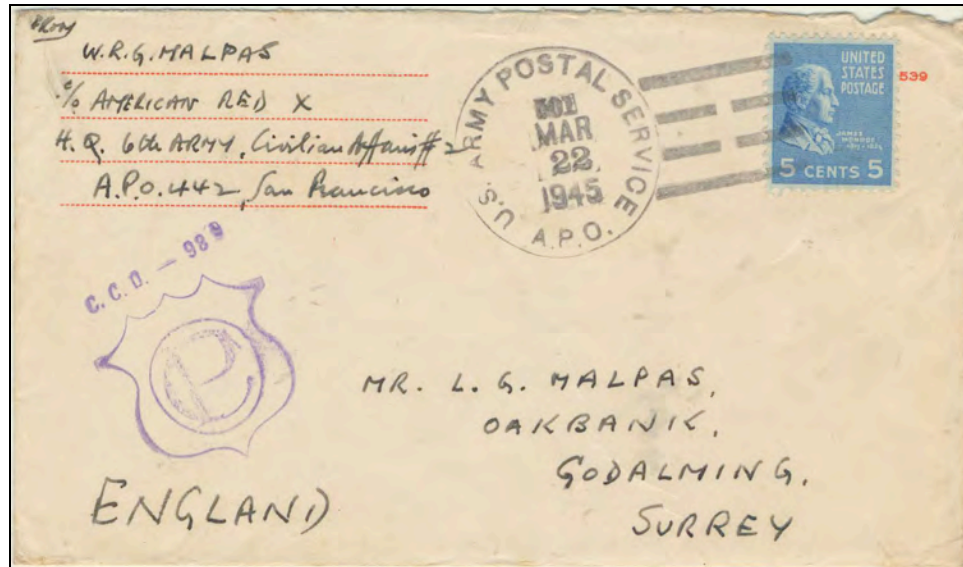 From
W.R.G. MALPAS
c/o AMERICAN RED X
H.Q. 6th ARMY, Civilian Affairs #2
A.P.O. 442, San Francisco
U.S. ARMY POSTAL SERVICE
MAR
22
1945
A.P.O.
UNITED
STATES
POSTAGE
JAMES
MONROE
5 CENTS 5
539
C.C.D. — 989
P
MR. L. G. MALPAS,
OAKBANK,
GODALMING,
SURREY
ENGLAND